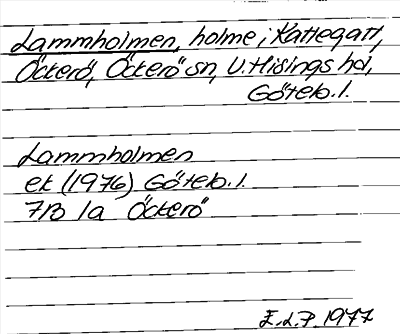 Lammholmen, holme i Kattegatt,
Öckerö, Öckerö sn, V. Hisings hd,
Göteb. l.
Lammholmen
ek (1976) Göteb. l.
7B 1a Öckerö
E.L.P. 1977